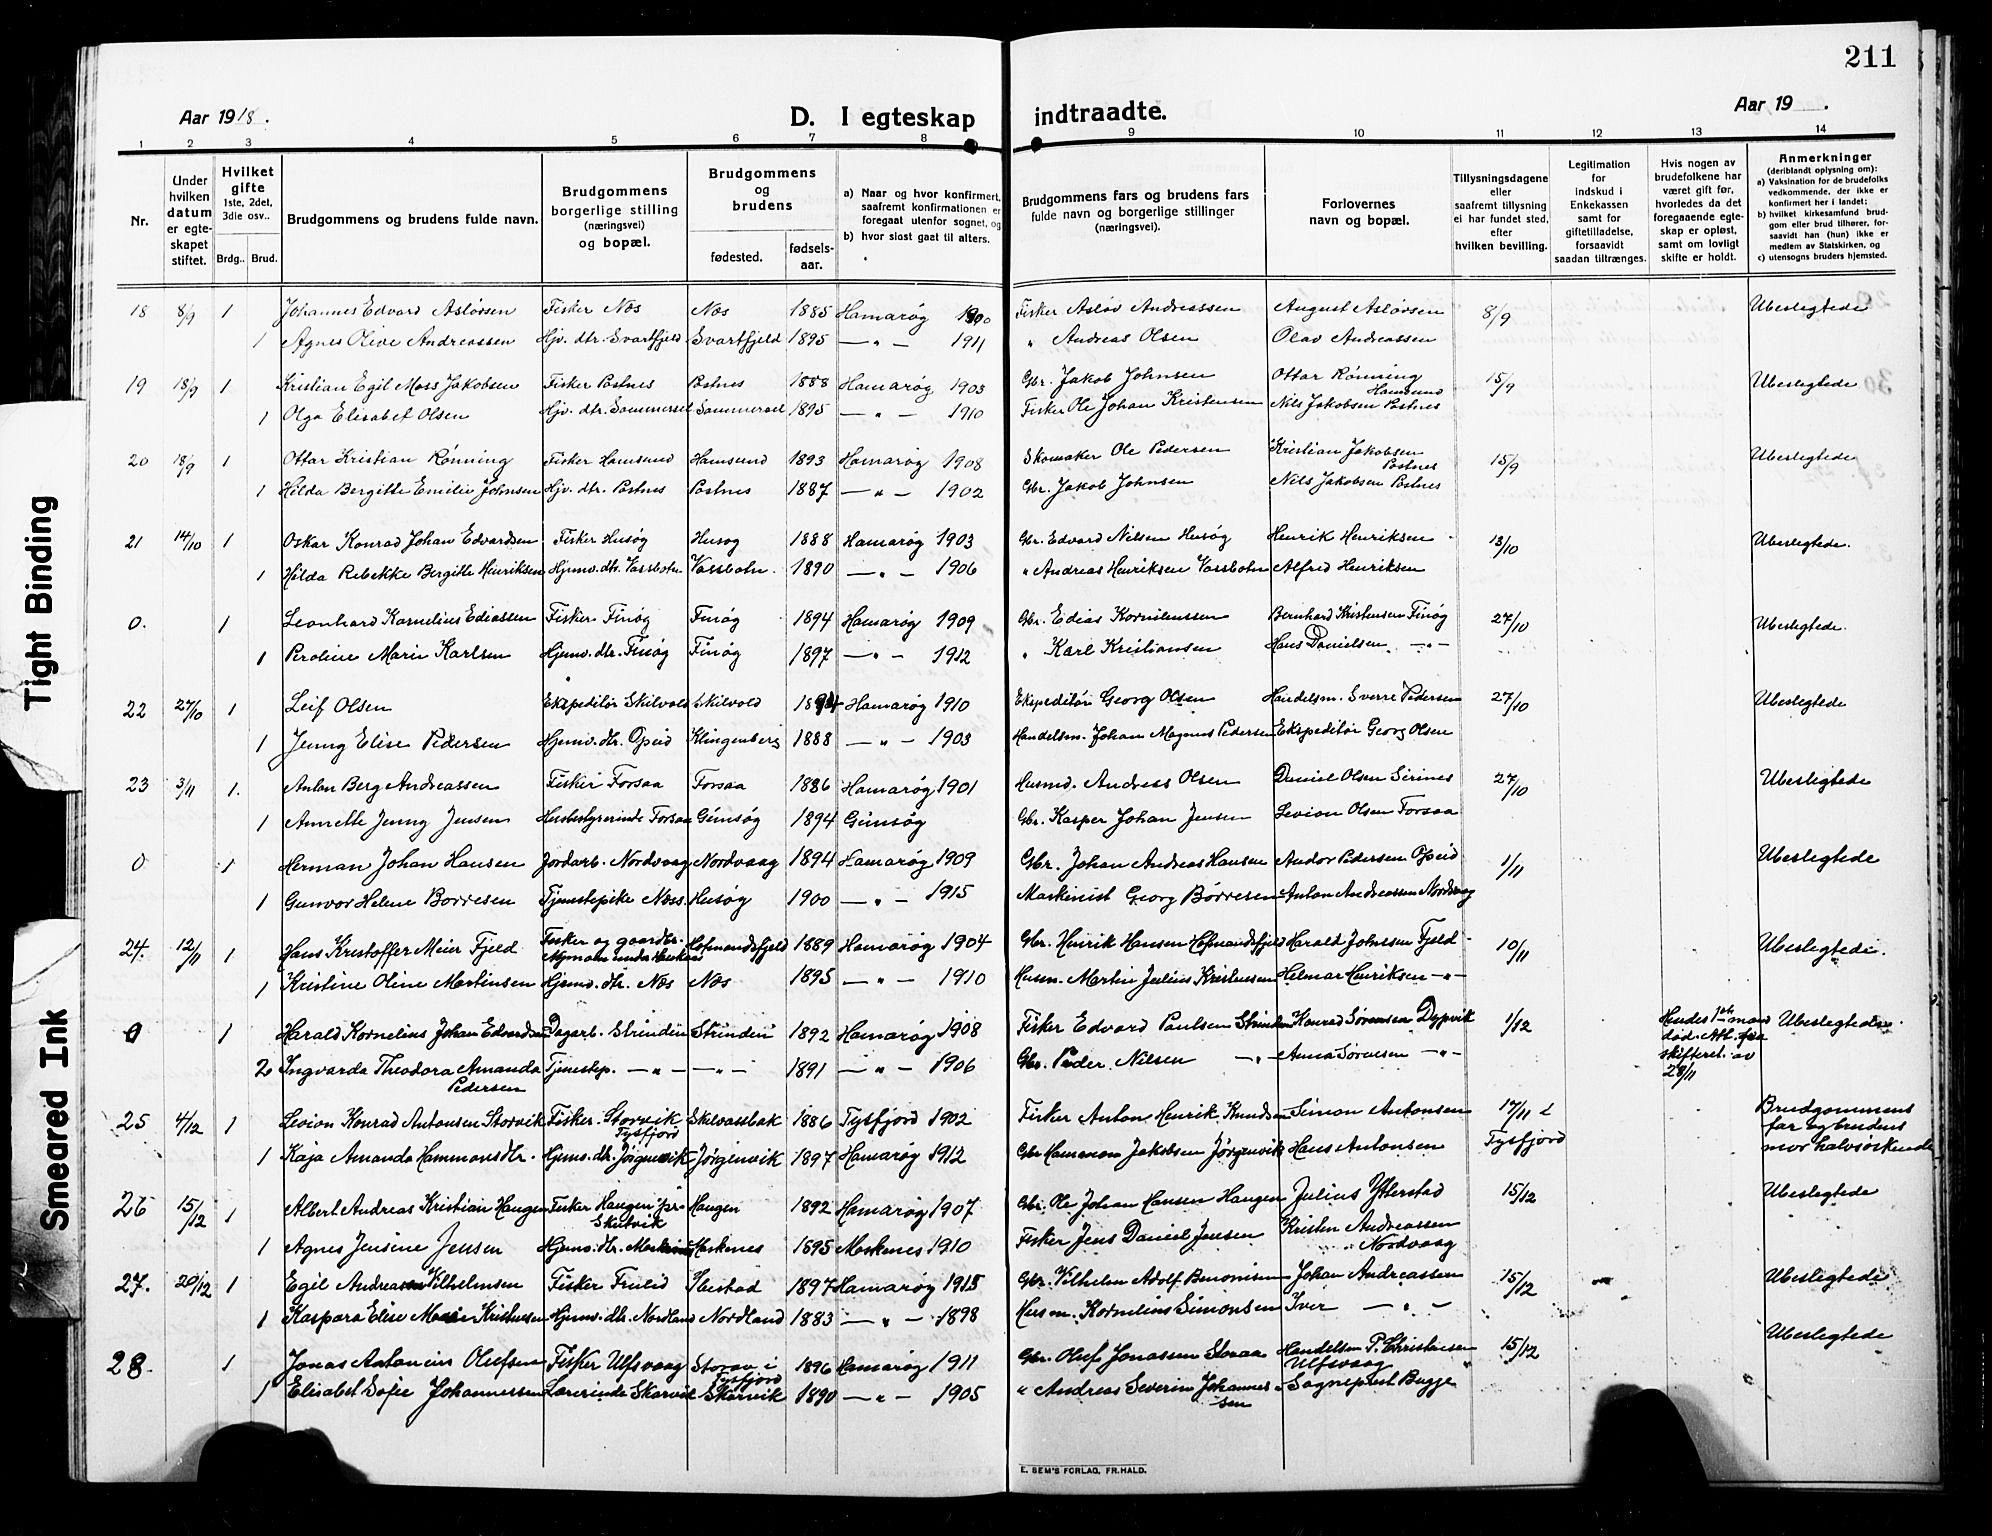 211
Aar 1918.
D. I egteskap indtraadte.
Aar 19 .
1 2 3 4 5 6 7 8 9 10 11 12 13 14
Nr.
Under hvilken datum er egteskapet stiftet.
Hvilket gifte 1ste, 2det, 3die osv..
Brdg.. Brud.
Brudgommens og brudens fulde navn.
Brudgommens borgerlige stilling (næringsvei) og bopæl.
Brudgommens og brudens
fødested.
fødsels-aar.
a) Naar og hvor konfirmert, saafremt konfirmationen er foregaat utenfor sognet, og
b) hvor sidst gaat til alters.
Brudgommens fars og brudens fars fulde navn og borgerlige stillinger (næringsvei).
Forlovernes navn og bopæl.
Tillysningsdagene eller saafremt tillysning ei har fundet sted, efter hvilken bevilling.
Legitimation for indskud i Enkekassen samt for giftetilladelse, forsaavidt saadan tiltrænges.
Hvis nogen av brudefolkene har været gift før, hvorledes da det foregaaende egteskap er opløst, samt om lovligt skifte er holdt.
Anmerkninger (deriblandt oplysning om):
a) Vaksination for de brudefolks vedkommende, der ikke er konfirmert her i landet;
b) hvilket kirkesamfund brudgom eller brud tilhører, forsaavidt han (hun) ikke er medlem av Statskirken, og
c) utensogns bruders hjemsted.
18 8/9 1 Johannes Edvard Asløvsen Fisker Næs Næs 1885 Hamarøg 1900 Fisker Asløv Andreassen August Asløvsen 8/9 Ubeslegtede
1 Agnes Olive Andreassen Hjv. dtr. Svartfjeld Svartfjeld 1895 — " — 1911 " Andreas Olsen Olav Andreassen
19 18/9 1 Kristian Egil Moss Jakobsen Fisker Postnes Postnes 1888 Hamarøg 1903 Gbr. Jakob Johnsen Ottar Rønning Hamsund 15/9 Ubeslegtede
1 Olga Elisabet Olsen Hjv. dtr. Sommersel Sommersel 1895 — " — 1910 Fisker Ole Johan Kristensen Nils Jakobsen Postnes
20 18/9 1 Ottar Kristian Rønning Fisker Hamsund Hamsund 1893 Hamarøg 1908 Skomaker Ole Pedersen Kristian Jakobsen Postnes 15/9 Ubeslegtede
1 Hilda Bergitte Emilie Johnsen Hjv. dtr. Postnes Postnes 1887 — " — 1902 Gbr. Jakob Johnsen Nils Jakobsen Postnes
21 14/10 1 Oskar Konrad Johan Edvardsen Fisker Husøg Husøg 1888 Hamarøg 1903 Gbr. Edvard Nilsen Husøg Henrik Henriksen 13/10 Ubeslegtede.
1 Hilda Rebekke Bergitte Henriksen Hjemv. dtr. Vassbotn Vassbotn 1890 — " — 1906 " Andreas Henriksen Vassbotn Alfred Henriksen
0. 1 Leonhard Kornelius Ediassen Fisker Finøg Finøg 1894 Hamarøg 1909 Gbr. Edias Korneliussen Bernhard Kristensen Finøg 27/10 Ubeslegtede.
1 Peroline Marie Karlsen Hjemv. dtr. Finøg Finøg 1897 — " — 1912 " Karl Kristiansen Hans Danielsen — " —
22 27/10 1 Leif Olsen Ekspeditør Skilvold Skilvold 1894 Hamarøg 1910 Ekspeditør Georg Olsen Handelsm. Sverre Pedersen 27/10 Ubeslegtede
1 Jenny Elise Pedersen Hjemv. dtr. Opeid Klingenberg 1888 — " — 1903 Handelsm. Johan Magnus Pedersen Ekspeditør Georg Olsen
23 3/11 1. Anton Berg Andreassen Fisker Forsaa Forsaa 1886 Hamarøg 1901 Husmd. Andreas Olsen Daniel Olsen Sirines 27/10 Ubeslegtede
1 Annette Jenny Jensen Husbestyrerinde Forsaa Gimsøg 1894 Gimsøg Gbr. Kasper Johan Jensen Levion Olsen Forsaa
0 1 Herman Johan Hansen Jordarb. Nordvaag Nordvaag 1894 Hamarøg 1909 Gbr. Johan Andreas Hansen Andor Pedersen Opeid 1/11 Ubeslegtede
1 Gunvor Helene Børresen Tjenestepike Næss Husøg 1900 — " — 1915 Maskinist Georg Børresen Anton Andreassen Nordvaag
24. 12/11 1 Hans Kristoffer Meier Fjeld Fisker og gaardbr. Hofmandsfjeld 1889 Hamarøg 1904 Gbr. Henrik Hansen Hofmandsfjeld Harald Johnsen Fjeld 10/11 Ubeslegtede.
1 Kristine Oline Martinsen Hjemv. dtr. Næs Næs 1895 — " — 1910 Husm. Martin Julius Kristensen Helmar Henriksen — " —
0 1 Harald Kornelius Johan Edvardsen Dagarb. Strinden Strinden 1892 Hamarøg 1908 Fisker Edvard Paulsen Strinden Konrad Sørensen Dypvik 1/12 Hendes 1ste mand død. Att. fra skifteret. av 28/11 Ubeslegtede.
2 Ingvarda Theodora Amanda Pedersen Tjenestep. — " — — " — 1891 — " — 1906 Gbr. Peder Nilsen — " — Anna Sørensen — " —
25 4/12 1 Levion Konrad Antonsen Storvik Fisker. Storvik Tysfjord Skilvassbak 1886 Tysfjord 1902 Fisker Anton Henrik Knudsen Simon Antonsen 17/11 i Tysfjord Brudgommens far og brudens mor halvsøskende
1 Kaja Amanda Hammonsdtr. Hjemv. dtr. Jørgenvik Jørgenvik 1897 Hamarøg 1912 Gbr Hammon Jakobsen Jørgenvik Hans Antonsen
26 15/12 1 Albert Andreas Kristian Haugen Fisker Haugen pr. Skutvik Haugen 1892 Hamarøg 1907 Gbr. Ole Johan Hansen Haugen Julius Ytterstad 15/12 Ubeslegtede
1 Agnes Jensine Jensen Hjemv. dtr. Moskenes Moskenes 1895 Moskenes 1910 Fisker Jens Daniel Jensen Kristen Andreassen Nordvaag
27. 20/12 1 Egil Andreas Vilhelmsen Fisker Finlid Ibestad 1897 Hamarøg 1915 Gbr. Vilhelm Adolf Benonisen Johan Andreassen 15/12 Ubeslegtede
1 Kaspara Elise Marie Kristensen Hjemv. dtr. Nordland Nordland 1883 — " — 1898 Husm. Kornelius Simonsen Iver — " —
28 1 Jonas Antonius Olufsen Fisker Ulfsvaag Storaa i Tysfjord 1896 Hamarøg 1911 Gbr. Oluf Jonassen Storaa Handelsm P. Christensen Ulfsvaag 15/12 Ubeslegtede
1 Elisabet Sofie Johannessen Lærerinde Skarvik Skarvik 1890 — " — 1905 " Andreas Severin Johannessen Sogneprest Bugge
E. SEM'S FORLAG, FR.HALD.
Tight Binding
Smeared Ink